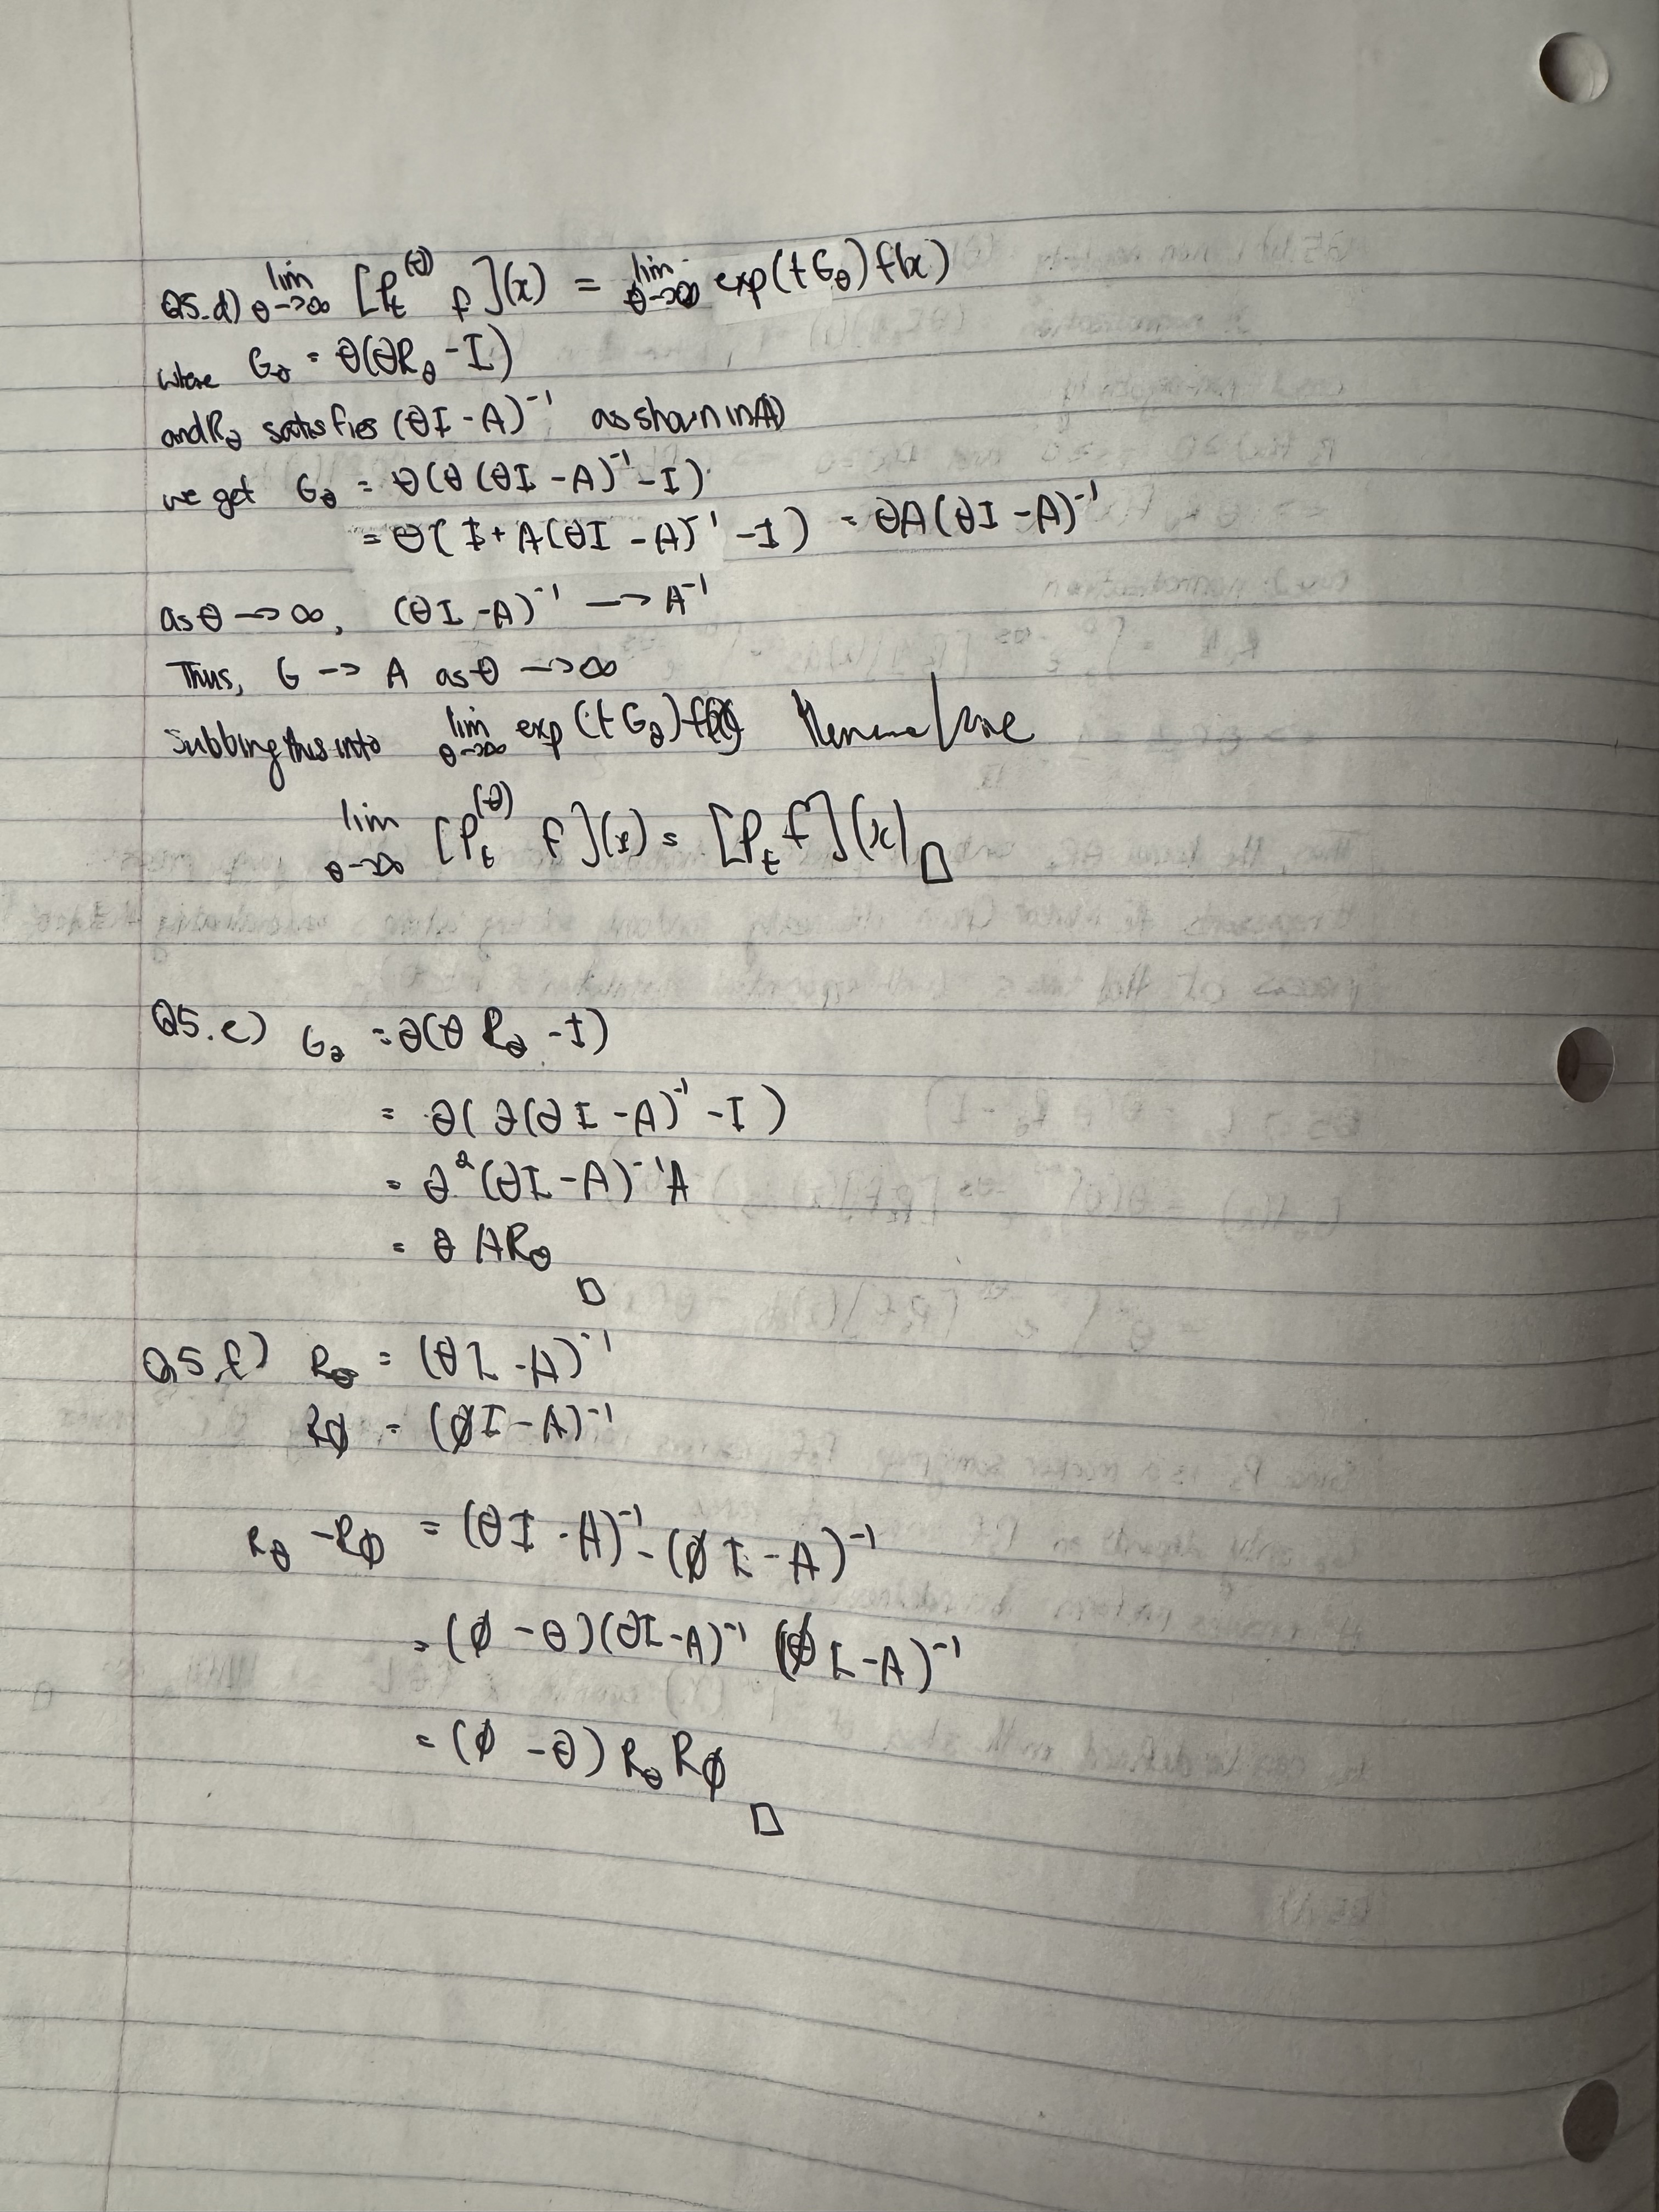 Q5.d) lim θ→∞ [P_t^(θ) f](x) = lim θ→∞ exp(tG_θ) f(x)
where G_θ = θ(θR_θ - I)
and R_θ satisfies (θI - A)^-1 as shown in A)
we get G_θ = θ(θ(θI - A)^-1 - I)
= θ(I + A(θI - A)^-1 - I) = θA(θI - A)^-1
as θ → ∞, (θI - A)^-1 → A^-1
Thus, G → A as θ → ∞
Subbing this into lim θ→∞ exp(tG_θ)f(x)
lim θ→∞ [P_t^(θ) f](x) = [P_t f](x) □
Q5.e) G_θ = θ(θ R_θ - I)
= θ(θ(θI - A)^-1 - I)
= θ^2(θI - A)^-1 A
= θ AR_θ □
Q5.f) R_θ = (θI - A)^-1
R_ϕ = (ϕI - A)^-1
R_θ - R_ϕ = (θI - A)^-1 - (ϕI - A)^-1
= (ϕ - θ)(θI - A)^-1 (ϕI - A)^-1
= (ϕ - θ) R_θ R_ϕ □